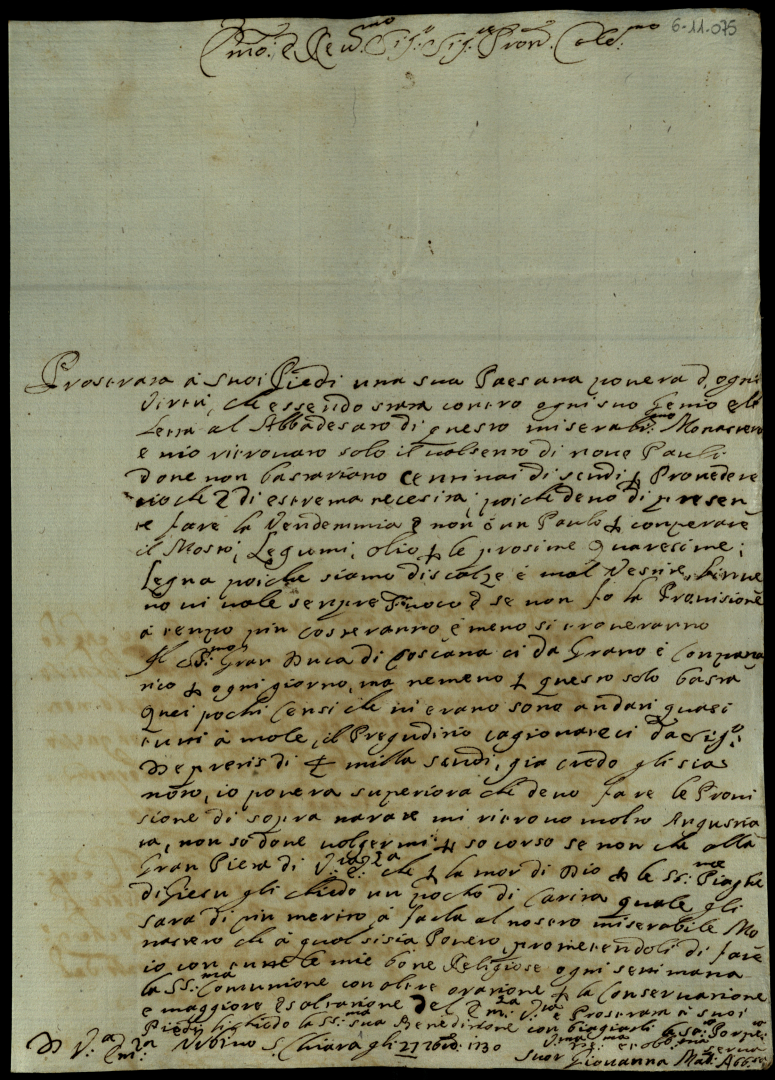 6-11-075
Emo: e Rev.mo Sig.e Sig.re Pron. Col.mo
Prostrata à suoi Piedi una sua Paesana povera d'ogni
Virtù, che essendo stata contro ogni suo Genio e
letta al Abbadesato di questo miserabil Monastero
e mio ritrovato solo il valsente di nove Pauli
dove non bastariano centinai di scudi Provedere
ciò che è di estrema necesità; poiche devo di presen
te fare la Vendemmia e non ò un Paulo comperare
il Mosto, Legumi, olio le prosime Quaresime;
Legna poiche siamo discalze è mal Vestite,
no vi vale sempre Fuoco e se non fo la Provisione
à tempo più costeranno è meno si troveranno
Il SS.mo Gran Duca di Toscana ci da Grano è
ogni giorno, ma nemeno questo solo basta
Quei pochi Censi che vi erano sono andati quasi
tutti à mole, il Pregiuditio cagionatoci da Sig.
Depretis di milla scudi, già credo gli sia
noto, io povera superiora che devo fare le Provi
sione di sopra narate mi ritrovo molto Angustia
ta, non sò dove volgermi socorso se non che alla
Gran Pietà di V. E. che la mor di Dio le SS.me Piaghe
di Giesù gli chiedo un pocho di Carità quale gli
sarà di più merito à farla al nostro miserabile Mo
nastero che à qual sisia Povero, prometendoli di fare
io con tutte le mie bone Religiose ogni setimana
la SS.ma Comunione con altre oratione la Conservatione
e maggiore Esaltatione del E.ma V.ra è Prostrata à suoi
Piedi li chiedo la SS.ma sua Benedittone con baciarli la sa. Porpo:
D V.a Em.za Urbino S. Chiara gli 27 1730
serva
Suor Giovanna Mat. Abb.sa